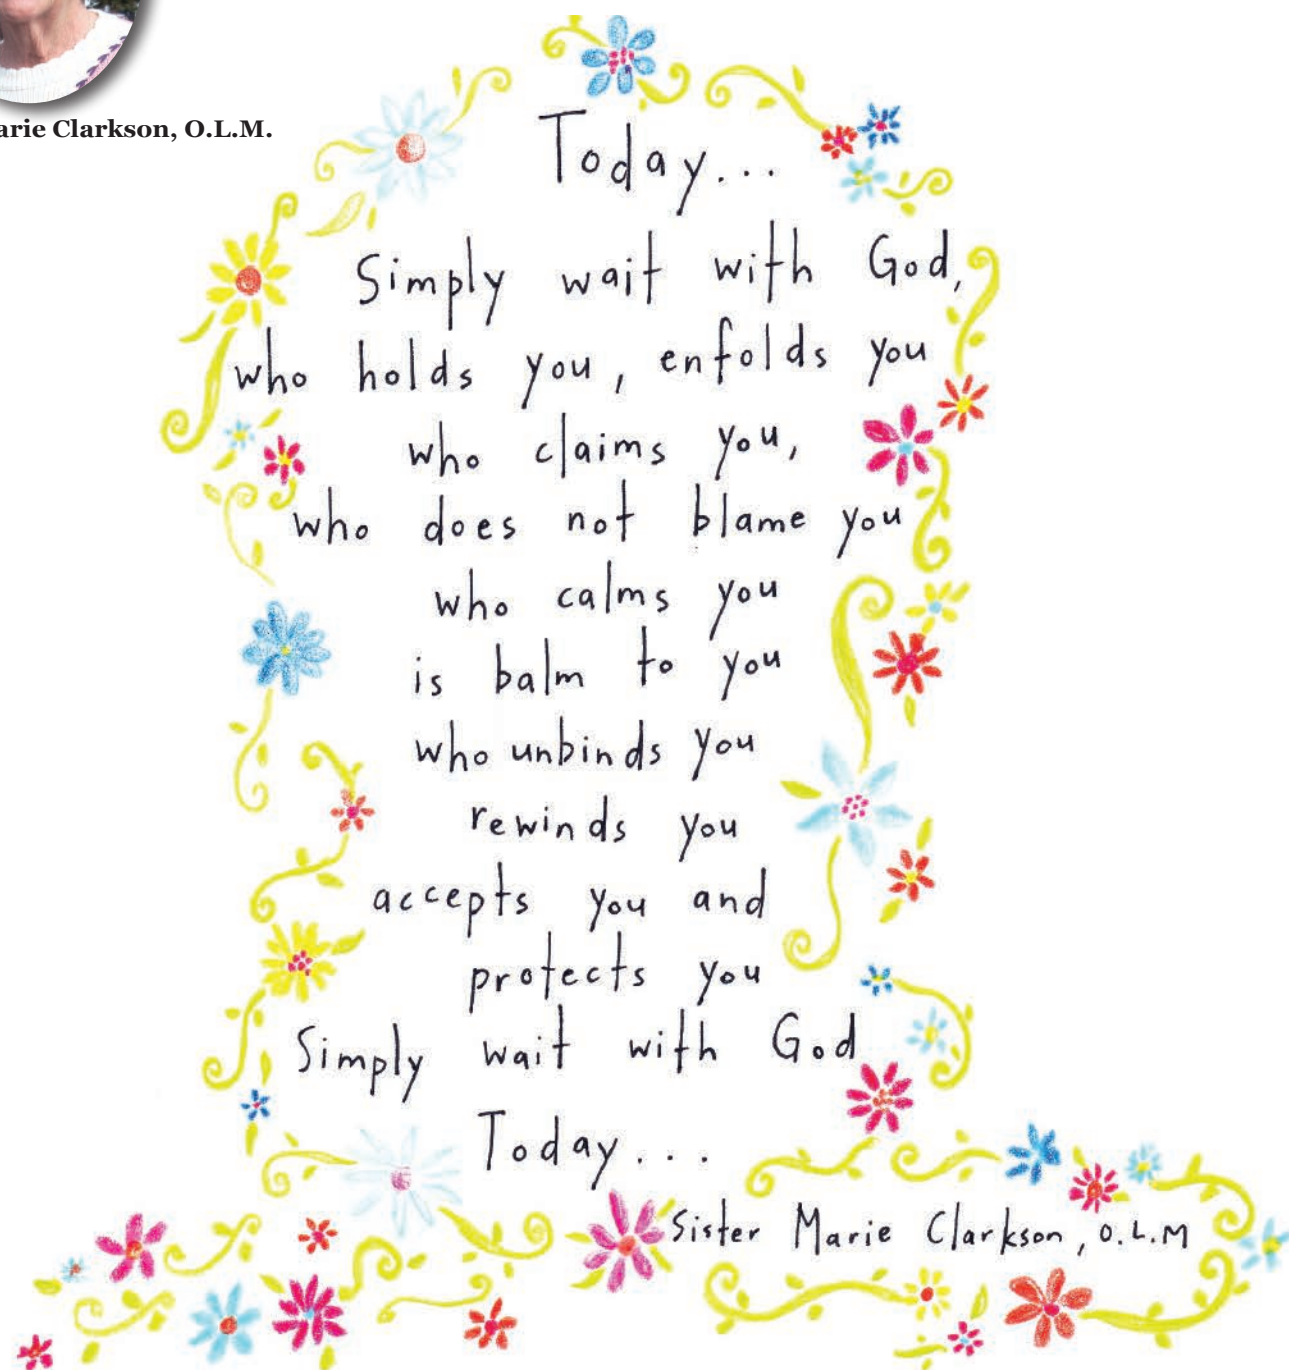 arie Clarkson, O.L.M.
Today...
Simply wait with God,
who holds you, enfolds you
who claims you,
who does not blame you
who calms you
is balm to you
who unbinds you
rewinds you
accepts you and
protects you
Simply wait with God
Today...
Sister Marie Clarkson, O.L.M